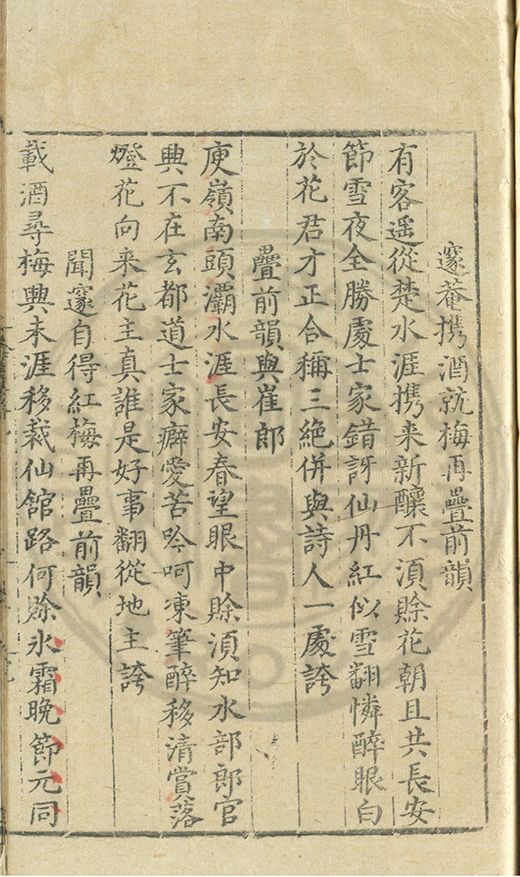 邃菴携酒就梅再疊前韻
有客遥從楚水涯携来新釀不湏賒花朝且共長安
節雪夜全勝處士家錯訝仙丹紅似雪翻憐醉眼白
於花君才正合稱三絕併與詩人一處誇
疊前韻與崔郎
庾嶺南頭灞水涯長安春望眼中賒湏知水部郎官
興不在玄都道士家癖愛苦吟呵凍筆醉移清賞落
燈花向来花主真誰是好事翻從地主誇
聞邃自得紅梅再疊前韻
載酒尋梅興未涯移栽仙舘路何賒氷霜晚節元同